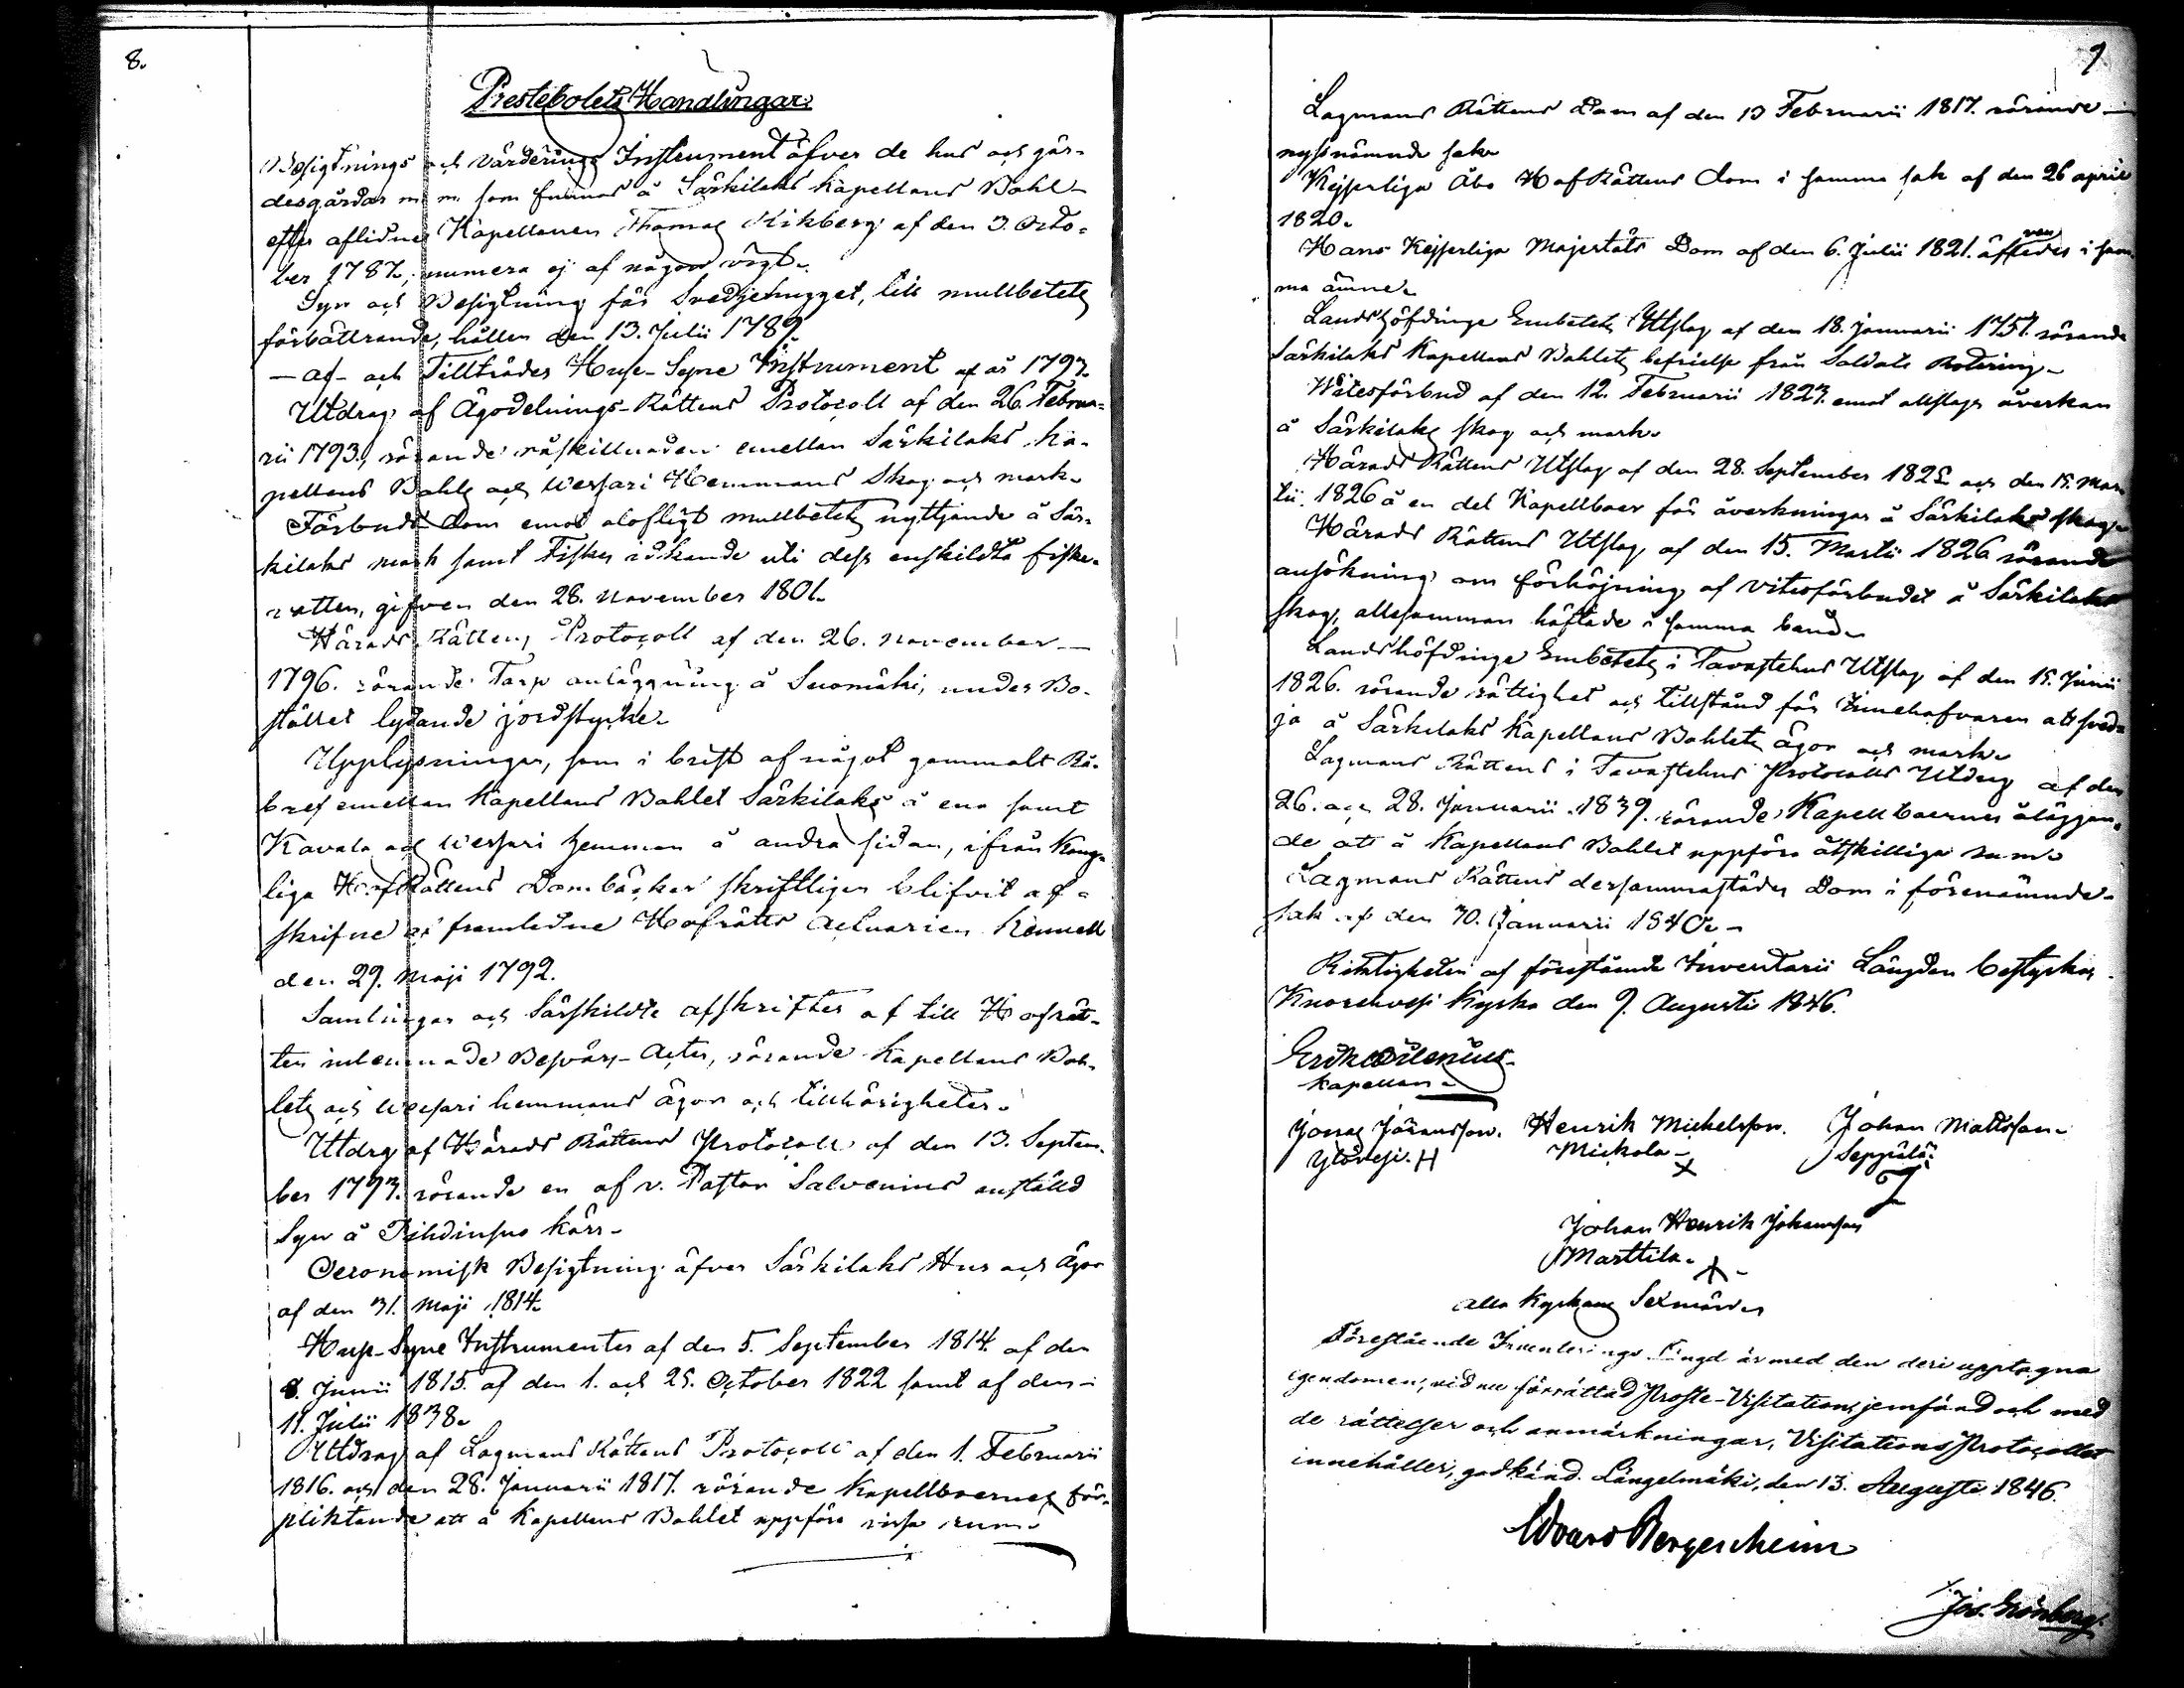 8.
Prestebolets Handlingar.
Besigtnings och Värderings Instrument öfver de hus och går-
desgårdar m m. som finnas å Särkilaks Kapellans Bohl
efter aflidne Kapellanen Thomas Kikberg af den 3. Octo-
ber 1787, numera ej af någon vigt.
Syn och Besigtning för Svedjehugget, till mullbetets
förbättrande, hållen den 13. Julii 1789.
— af- och Tillträdes Huse-Syne Instrument af år 1793.
Utdrag af Ägodelnings-Rättens Protocoll af den 26. Febru-
rii 1793, rörande råskillnaden emellan Särkilaks Ka-
pellans Bohls och Wessari Hemmans Skog och mark.
Förbuds Dom emot olofligt mullbetets nyttjande å Sär-
kilaks mark samt Fiskes idkande uti dess enskildta fiske-
vatten, gifven den 28. November 1801.
Härads Rättens Protocoll af den 26. November
1796. rörande Torp anläggning å Suomäki, under Bo-
stället lydande jordstycke.
Upplysningar, som i brist af något gammalt Rå-
bref emellan Kapellans Bohlet Särkilaks å ena samt
Kavala och Wessari hemman å andra sidan, ifrån Kong-
liga HofRättens Domböcker skriftligen blifvit af-
skrifne af framledne Hofrätts Actuarien
den 29. Maji 1792.
Samlingar och Särskildte afskrifter af till Hofrät-
ten inlemnade Besvärs-Acter, rörande Kapellans Boh-
lets och Wessari hemmans ägor och tillhörigheter.
Utdrag af Härads Rättens Protocoll af den 13. Septem-
ber 1793. rörande en af v. Pastor Salvenius anställd
Syn å kärr.
Oeconomisk Besigtning öfver Särkilaks Hus och Ägor
af den 31. Maji 1814.
Huse-Syne Instrumenter af den 5. September 1814. af den
8. Junii 1815. af den 1. och 25. October 1822 samt af den
11. Julii 1838.
Utdrag af Lagmans Rättens Protocoll af den 1. Februarii
1816. och den 28. Januarii 1817. rörande Kapellboernes för-
pliktande att å Kapellans Bohlet uppföra vissa rum.
9
Lagmans Rättens Dom af den 13 Februarii 1817. rörande
nyssnämnde sak.
Kejserliga Åbo HofRättens Dom i samma sak af den 26 april
1820.
Hans Kejserliga Majestäts Dom af den 6. Julii 1821. äfven i sam-
ma ämne.
Landshöfdinge Embetets Utslag af den 18. Januarii 1757. rörande
Särkilaks Kapellans Bohlets befrielse från Soldats Rotering.
Witesförbud af den 12. Februarii 1823. emot allslags åverkan
å Särkilaks skog och mark.
Härads Rättens Utslag af den 28. September 1825 och den 15. Mar-
tii 1826 å en del Kapellboer för åverkningar å Särkilaks skog.
Härads Rättens Utslag af den 15. Martii 1826 rörande
ansökning om förhöjning af vitesförbudet å Särkilaks
skog, allesamman häftade i samma band.
Landshöfdinge Embetets i Tavastehus Utslag af den 15. Junii
1826. rörande rättighet och tillstånd för Innehafvaren att sved-
ja å Särkilaks Kapellans Bohlets ägor och mark.
Lagmans Rättens i Tavastehus Protocolls Utdrag af den
26. och 28. Januarii 1839. rörande Kapellboernes åläggan-
de att å Kapellans Bohlet uppföra åtskilliga rum.
Lagmans Rättens dersammastädes Dom i förenämnde
sak af den 30. Januarii 1840.
Riktigheten af förestående Inventarii Längden bestyrkes
Kuorehvesi Kyrka den 9. Augusti 1846.
Kapellan.
Jonas Jöransson. Henrik Michelsson. Johan Mattsson
Ylövesi. H Mickola X Seppälä.
Johan Henrik Johansson
Marttila. X
alla Kyrkans Sexmän
Förestående Inventerings Längd är med den deri upptagna
egendomen, vid nu förrättad Proste-Visitation, jemförd och med
de rättelser och anmärkningar, Visitations Protocollet
innehåller, godkänd. Längelmäki, den 13. Augusti 1846.
Edvard Bergenheim
Jos. Grönberg.